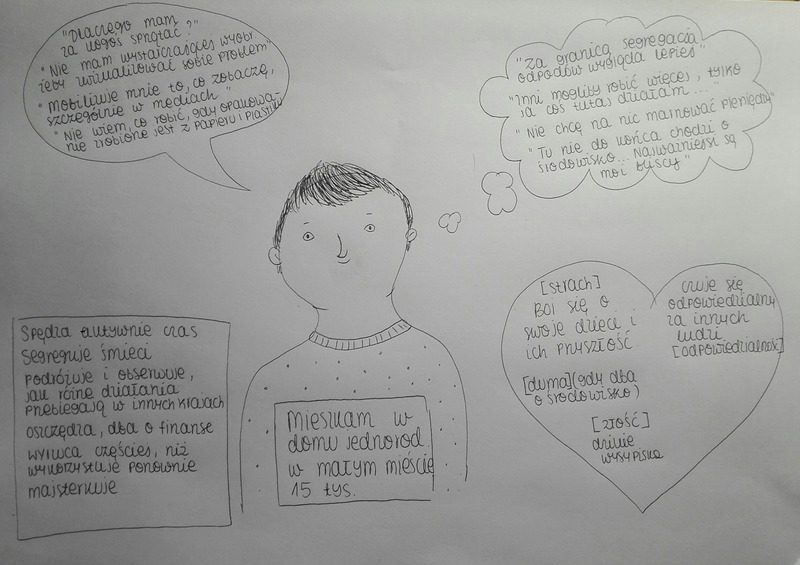 "Dlaczego mam
za kogoś sprzątać?"
"Nie mam wystarczającej wyobr.
żeby wizualizować sobie problem"
"Mobilizuje mnie to, co zobaczę,
szczególnie w mediach"
"Nie wiem, co robić, gdy opakowa-
nie zrobione jest z papieru i plastiku
"Za granicą segregacja
odpadów wygląda lepiej"
"Inni mogliby robić więcej, tylko
ja coś tutaj działam..."
"Nie chcę na nic marnować pieniędzy"
"Tu nie do końca chodzi o
środowisko... Najważniejsi są
moi bliscy"
Spędza aktywnie czas
Segreguje śmieci
Podróżuje i obserwuje,
jak różne działania
przebiegają w innych krajach
oszczędza, dba o finanse
wyrzuca częściej, niż
wykorzystuje ponownie
majsterkuje
Mieszkam w
domu jednorod.
w małym mieście
15 tys.
[strach]
Boi się o
swoje dzieci i
ich przyszłość
[duma] (gdy dba
o środowisko)
[złość]
dzikie
wysypiska
czuje się
odpowiedzialny
za innych
ludzi
[odpowiedzialność]